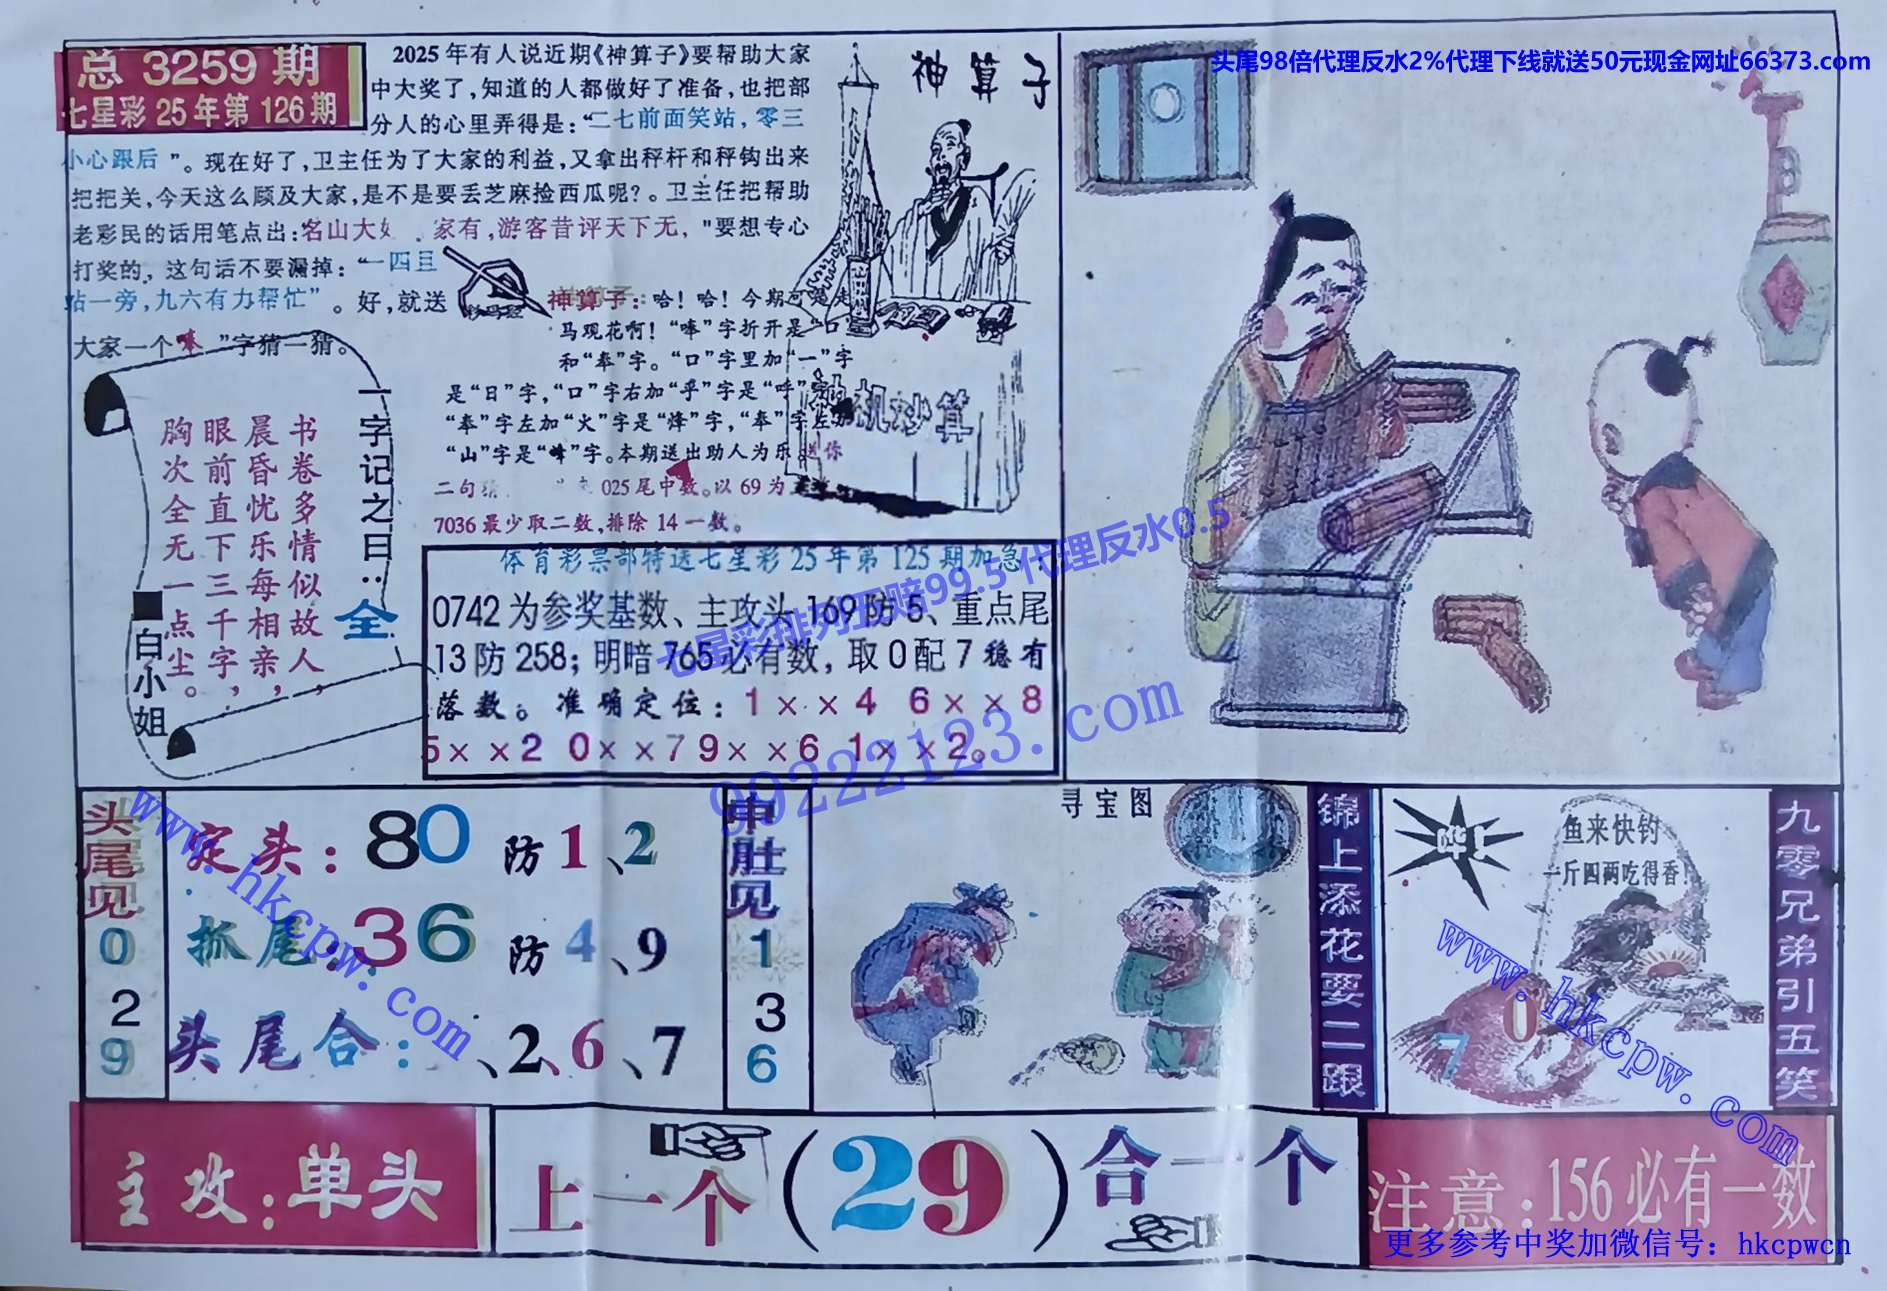 头尾98倍代理反水2%代理下线就送50元现金网址66373.com
总 3259 期
七星彩 25 年第 126 期
2025 年有人说近期《神算子》要帮助大家
中大奖了,知道的人都做好了准备,也把部
分人的心里弄得是:“二七前面笑站,零三
小心跟后”。现在好了,卫主任为了大家的利益,又拿出秤杆和秤钩出来
把把关,今天这么顾及大家,是不是要丢芝麻捡西瓜呢?。卫主任把帮助
老彩民的话用笔点出:名山大 家有,游客昔评天下无,"要想专心
打奖的,这句话不要漏掉:“一四且
站一旁,九六有力帮忙”。好,就送
大家一个 ”字猜一猜。
神算子
神算子:哈!哈!今期可是走
马观花啊!“唪”字折开是“口”
和“奉”字。“口”字里加“一”字
是“日”字,“口”字右加“乎”字是“呼”字
“奉”字左加“火”字是“烽”字,“奉”字左加
“山”字是“峰”字。本期送出助人为乐。送你
二句 025 尾中数。以 69 为
7036 最少取二数,排除 14 一数。
机妙算
一字记之曰:全
书卷多情似故人,
晨昏忧乐每相亲,
眼前直下三千字,
胸次全无一点尘。
■白小姐
体育彩票部特送七星彩 25 年第 125 期加急:
0742 为参奖基数、主攻头 169 防 5、重点尾
13 防 258;明暗 765 必有数,取 0 配 7 稳有
落数。准确定位:1××4 6××8
5××2 0××7 9××6 1××2。
七星彩排列五赔99.5 代理反水0.5
99222123.com
头尾见
0
2
9
定头:80 防 1、2
抓尾:36 防 4、9
头尾合: 、2、6、7
www.hkcpw.com
中肚见
1
3
6
寻宝图
锦上添花要二跟
鱼来快钓
一斤四两吃得香!
7 0
www.hkcpw.com
九零兄弟引五笑
主攻:单头
上一个(29)合一个
注意:156 必有一数
更多参考中奖加微信号:hkcpwcn